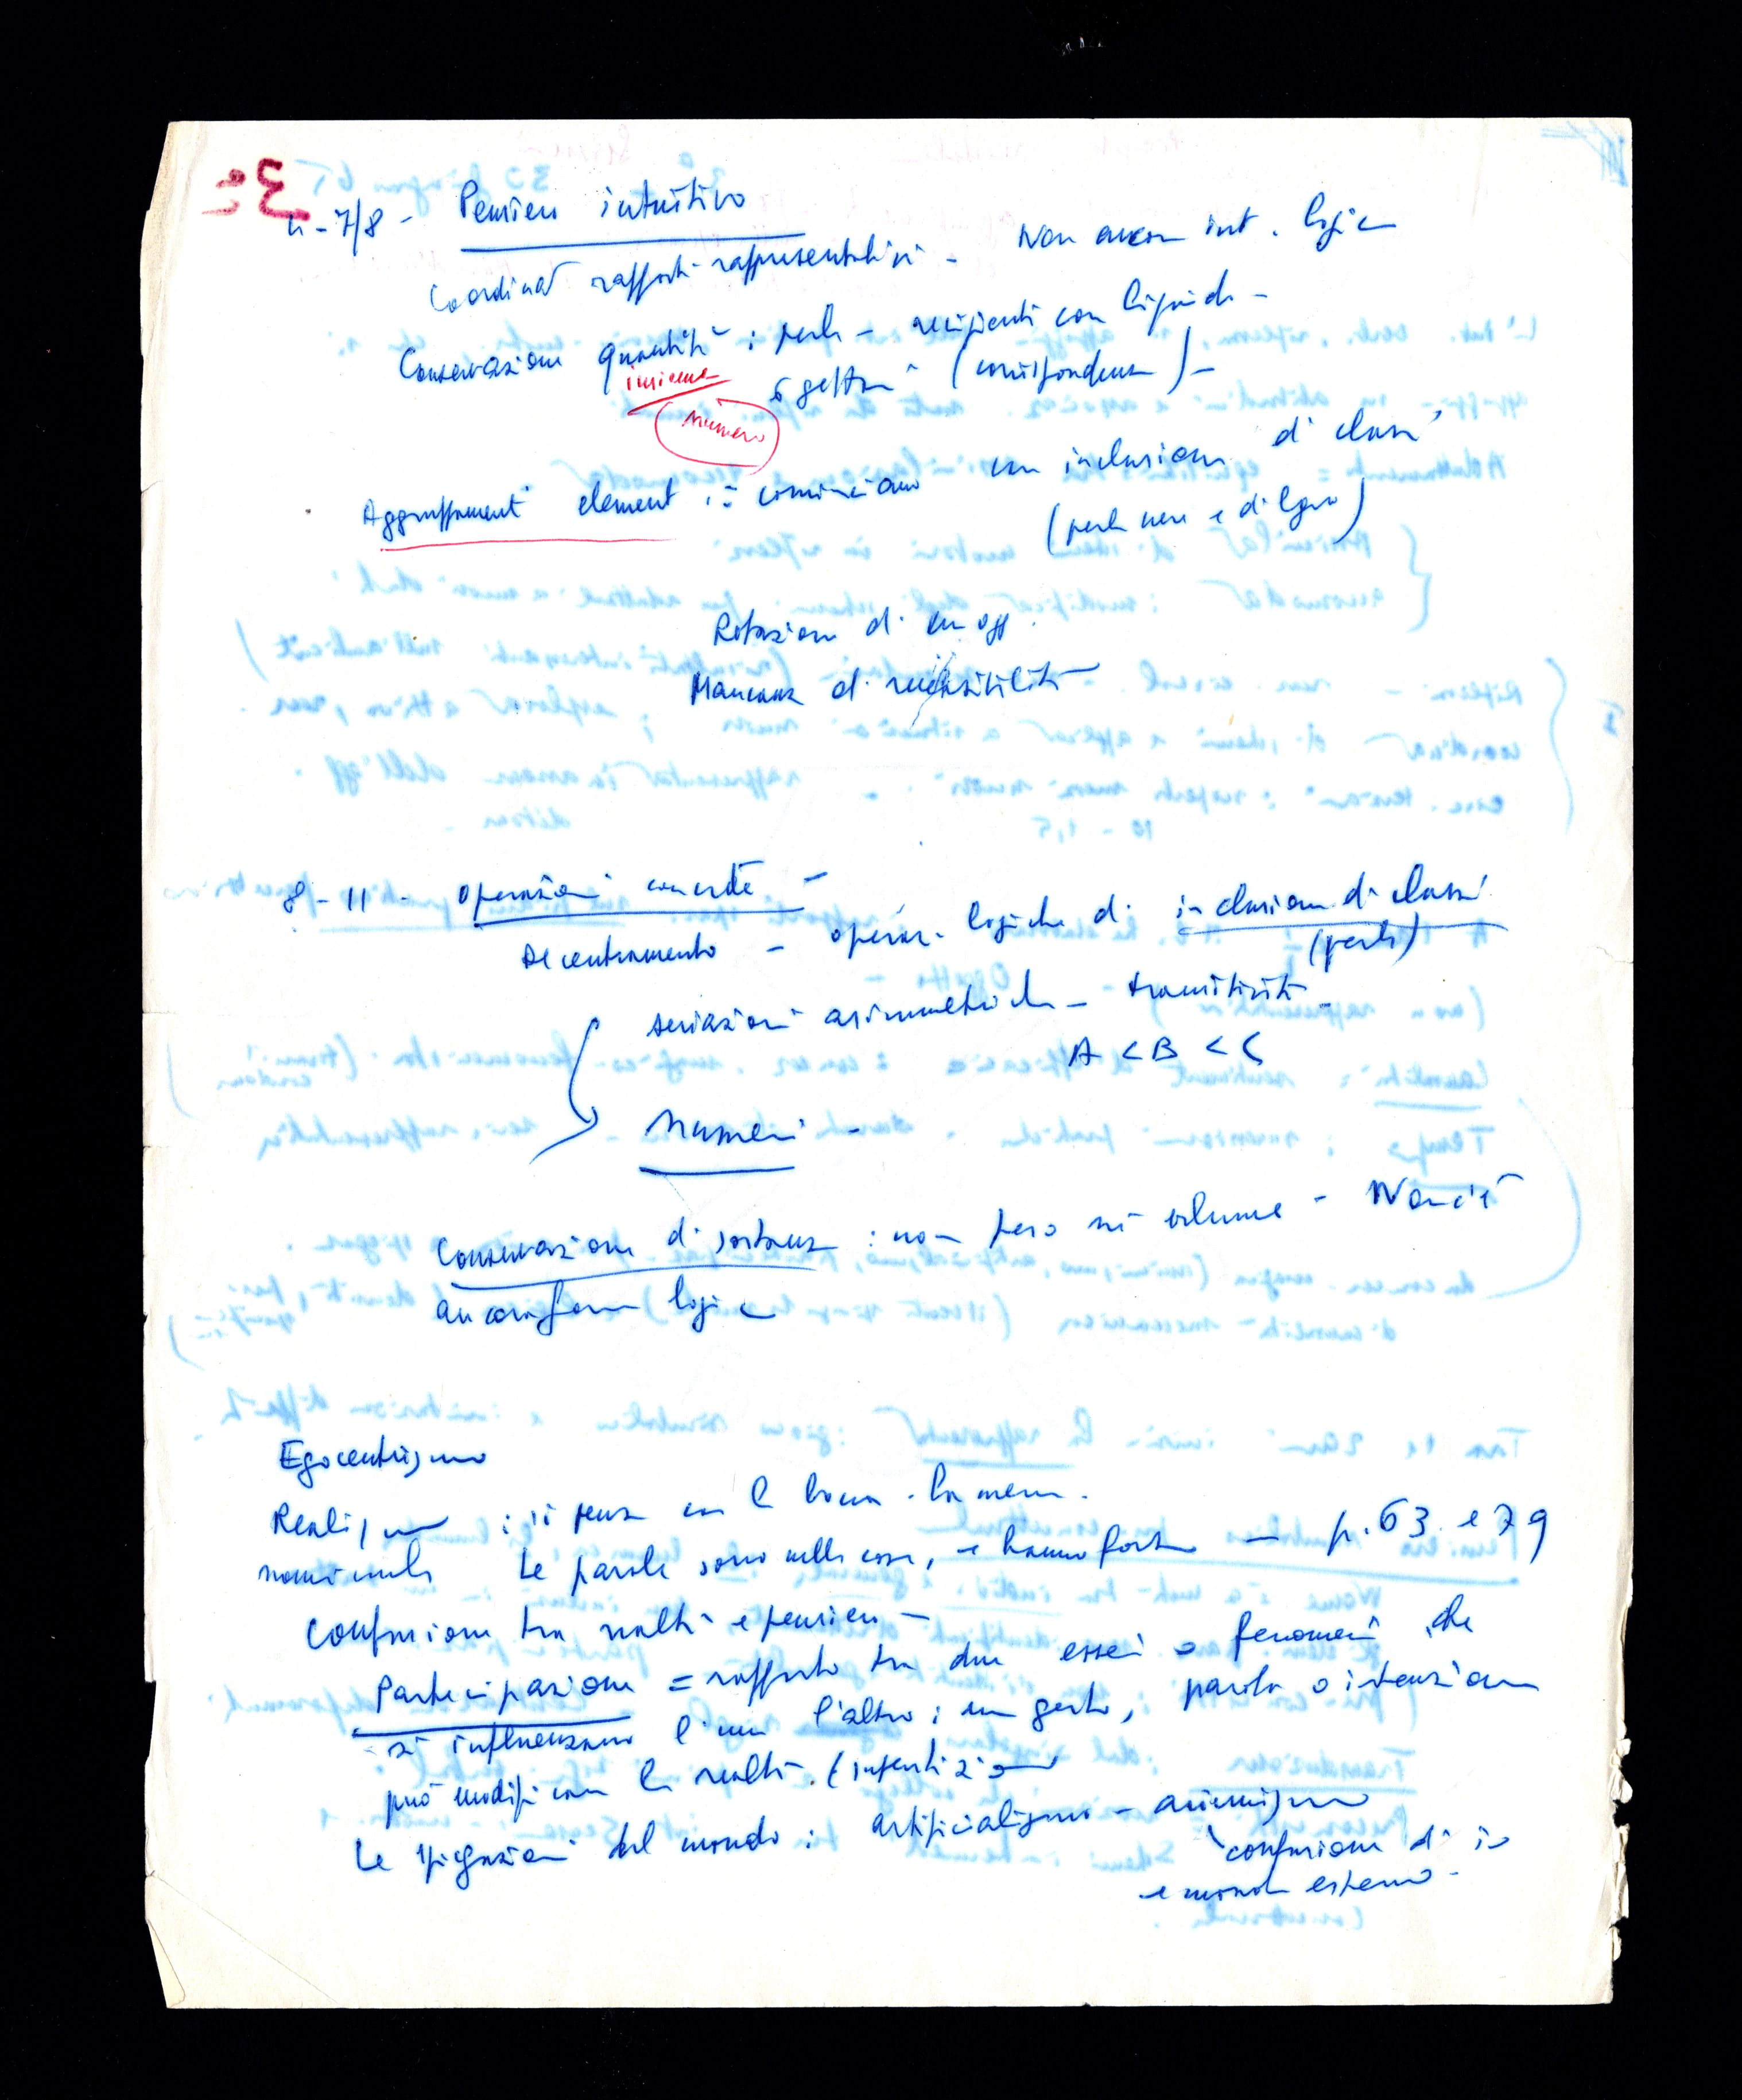 4-7/8 - Pensiero intuitivo
Coordinaz rapporti rappresentativi - Non ancora int. logica
Conservazione quantità: perle - recipienti con liquido -
insieme 6 gettoni (corrispondenza) -
numero
Aggruppamenti element.: cominciano con inclusione di classi
(perle nere e di legno)
Rotazione di un ogg.
Mancanza di reversibilità
8-11 - Operazioni concrete -
Decentramento - operaz. logiche di inclusione di classi
(perle)
seriazioni asimmetriche - transitività -
A < B < C
Numeri -
Conservazione di sostanza: non però sù volume - Non c'è
ancora forma logica
Egocentrismo
Realismo : si pensa con la bocca.
nominale Le parole sono nelle cose, e hanno forza - p. 63 e 79
Confusione tra realtà e pensiero -
Partecipazione = rapporto tra due esseri o fenomeni che
si influenzano l'un l'altro; un gesto, parola o intenzione
può modificare la realtà.
Le spiegazioni del mondo: artificialismo - animismo
confusione di io
e mondo esterno -